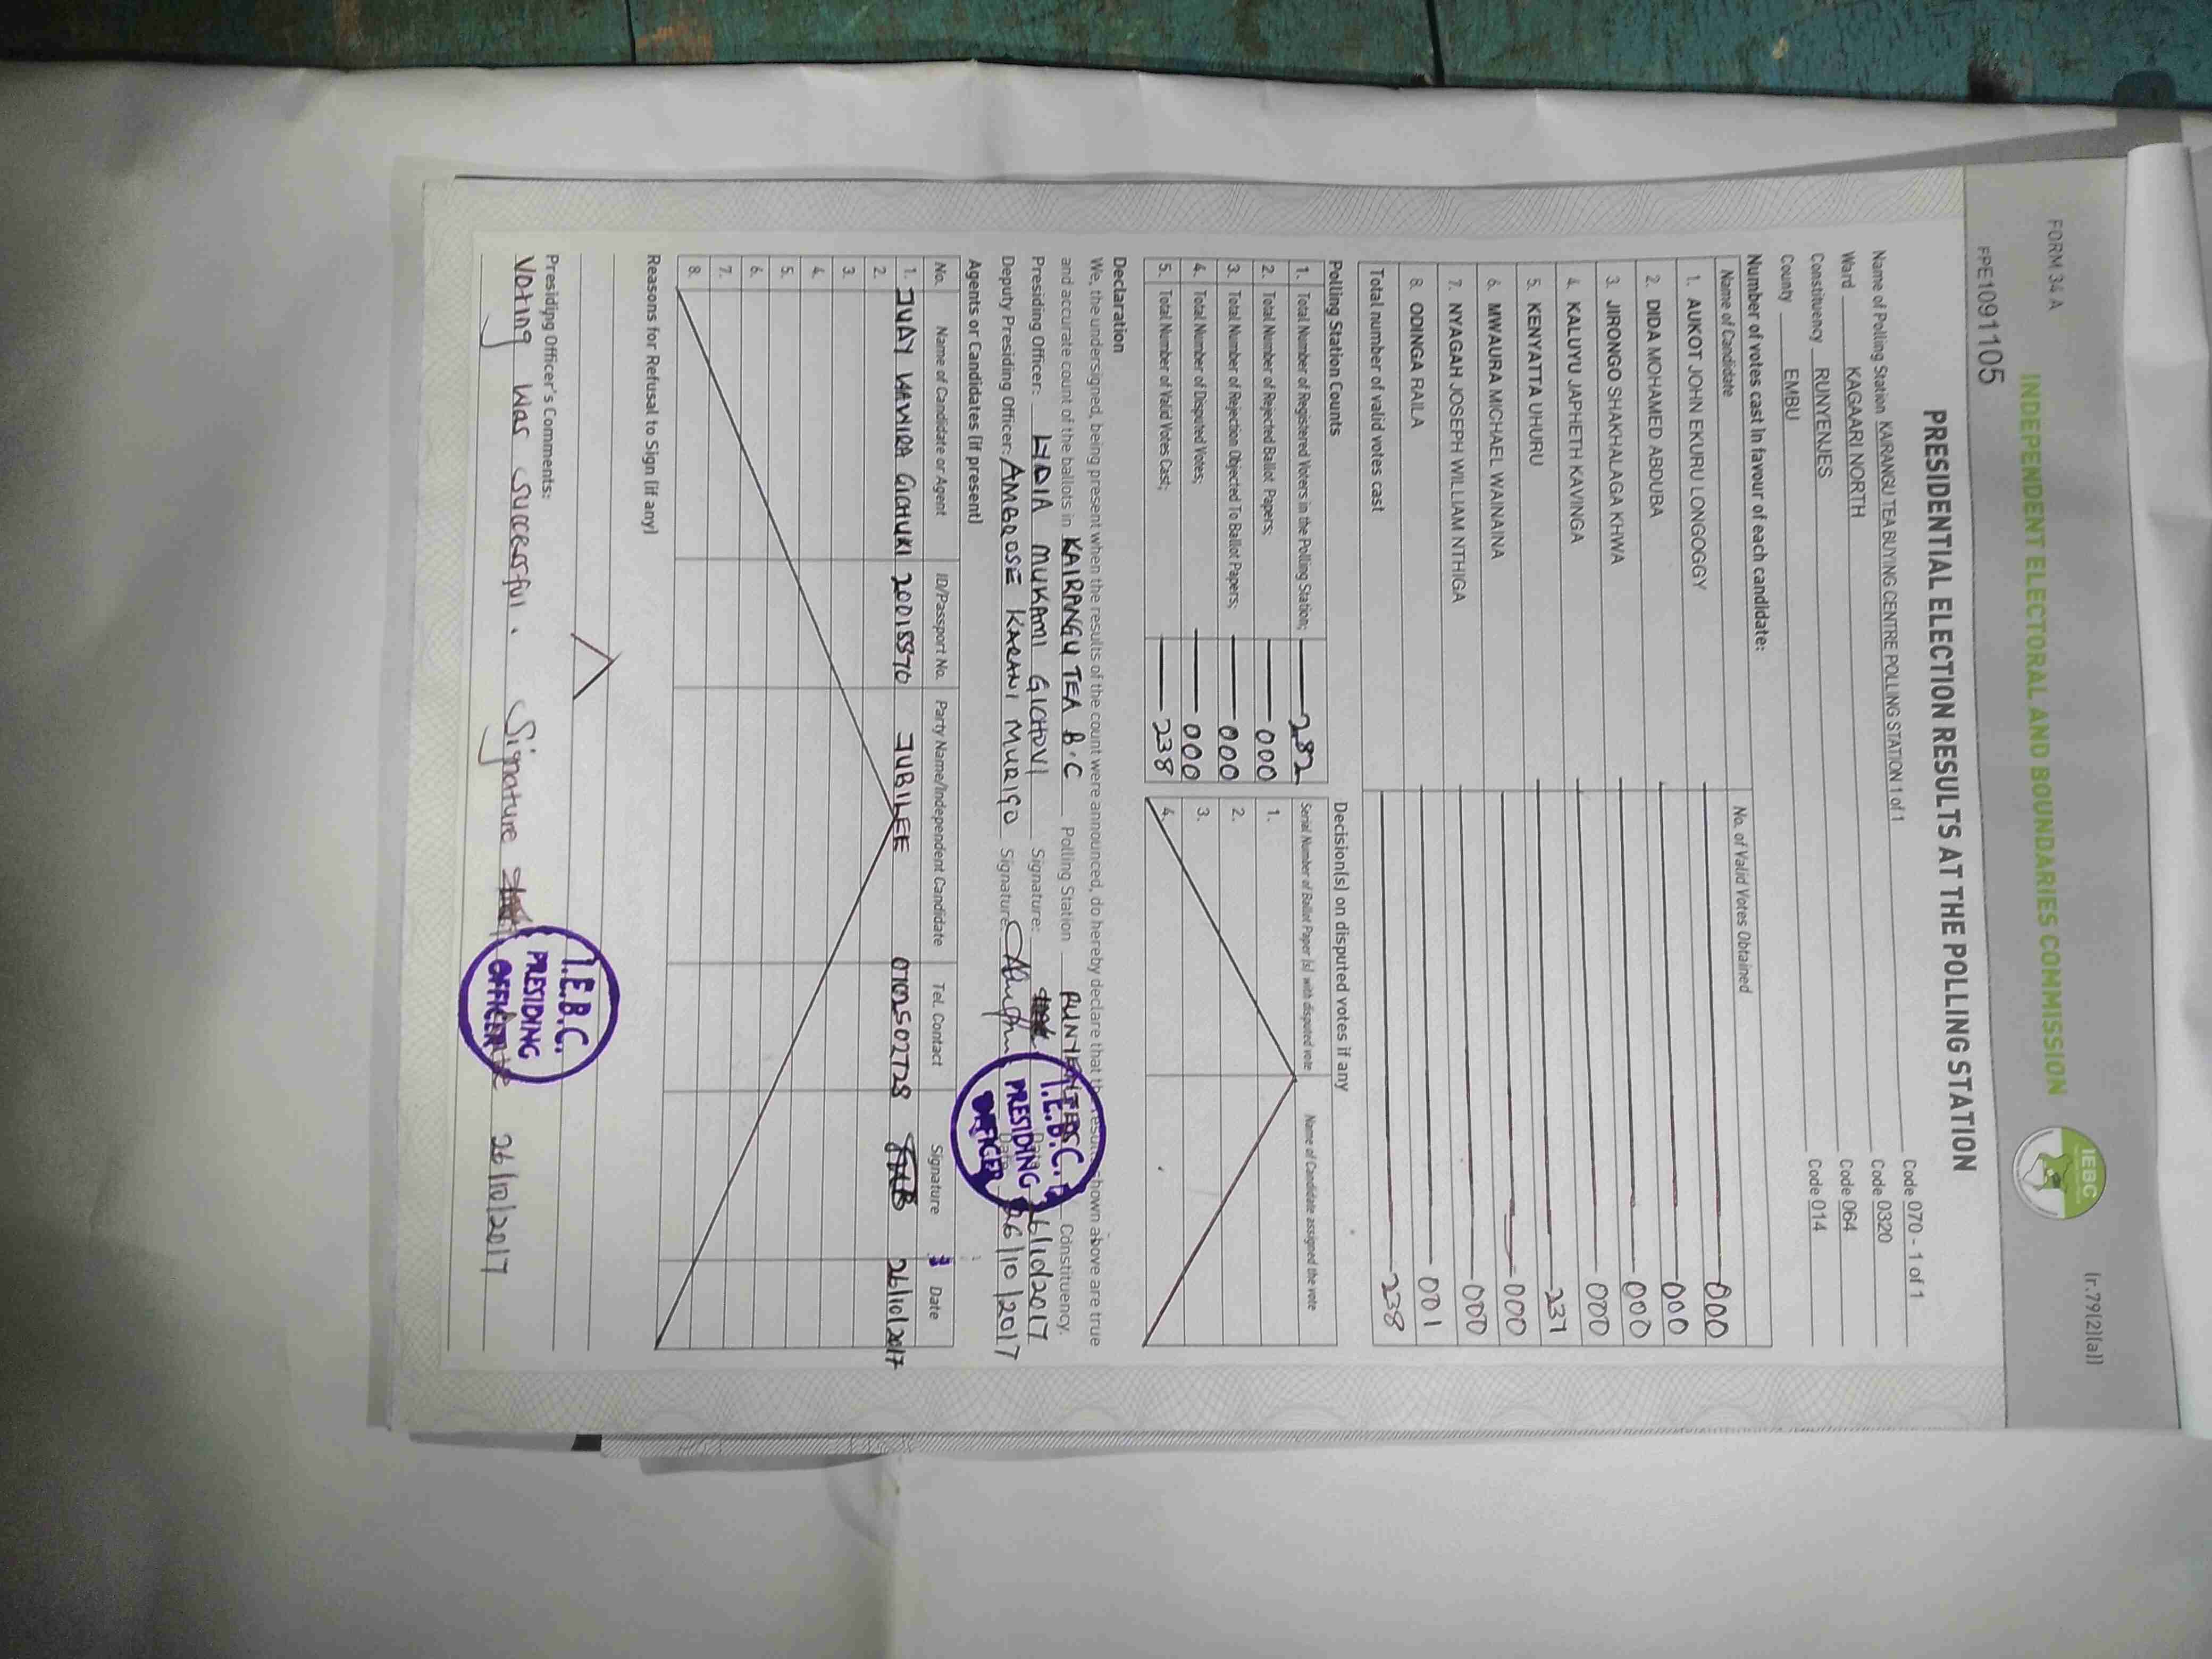 FORM 34 A
(r.79(2)(a))
INDEPENDENT ELECTORAL AND BOUNDARIES COMMISSION
IEBC
FPE1091105
PRESIDENTIAL ELECTION RESULTS AT THE POLLING STATION
Name of Polling Station KAIRANGU TEA BUYING CENTRE POLLING STATION 1 of 1 Code 070 - 1 of 1
Ward KAGAARI NORTH Code 0320
Constituency RUNYENJES Code 064
County EMBU Code 014
Number of votes cast in favour of each candidate:
Name of Candidate No. of Valid Votes Obtained
1. AUKOT JOHN EKURU LONGOGGY 000
2. DIDA MOHAMED ABDUBA 000
3. JIRONGO SHAKHALAGA KHWA 000
4. KALUYU JAPHETH KAVINGA 000
5. KENYATTA UHURU 237
6. MWAURA MICHAEL WAINAINA 000
7. NYAGAH JOSEPH WILLIAM NTHIGA 000
8. ODINGA RAILA 001
Total number of valid votes cast 238
Polling Station Counts
1. Total Number of Registered Voters in the Polling Station; 282
2. Total Number of Rejected Ballot Papers; 000
3. Total Number of Rejection Objected To Ballot Papers; 000
4. Total Number of Disputed Votes; 000
5. Total Number of Valid Votes Cast; 238
Decision(s) on disputed votes if any
Serial Number of Ballot Paper (s) with disputed vote Name of Candidate assigned the vote
1.
2.
3.
4.
Declaration
We, the undersigned, being present when the results of the count were announced, do hereby declare that the results shown above are true
and accurate count of the ballots in KAIRANGU TEA B.C Polling Station RUNYENJES Constituency.
Presiding Officer: LIDIA MUKAMI GICHOVI Signature: Date 26/10/2017
Deputy Presiding Officer: AMBROSE KARANI MURIGO Signature: Date 26/10/2017
I.E.B.C.
PRESIDING
OFFICER
Agents or Candidates (if present)
No. Name of Candidate or Agent ID/Passport No. Party Name/Independent Candidate Tel. Contact Signature Date
1. GICHUKI JUBILEE 26/10/2017
2.
3.
4.
5.
6.
7.
8.
Reasons for Refusal to Sign (if any)
Presiding Officer's Comments:
Voting was successful. Signature 26/10/2017
I.E.B.C.
PRESIDING
OFFICER